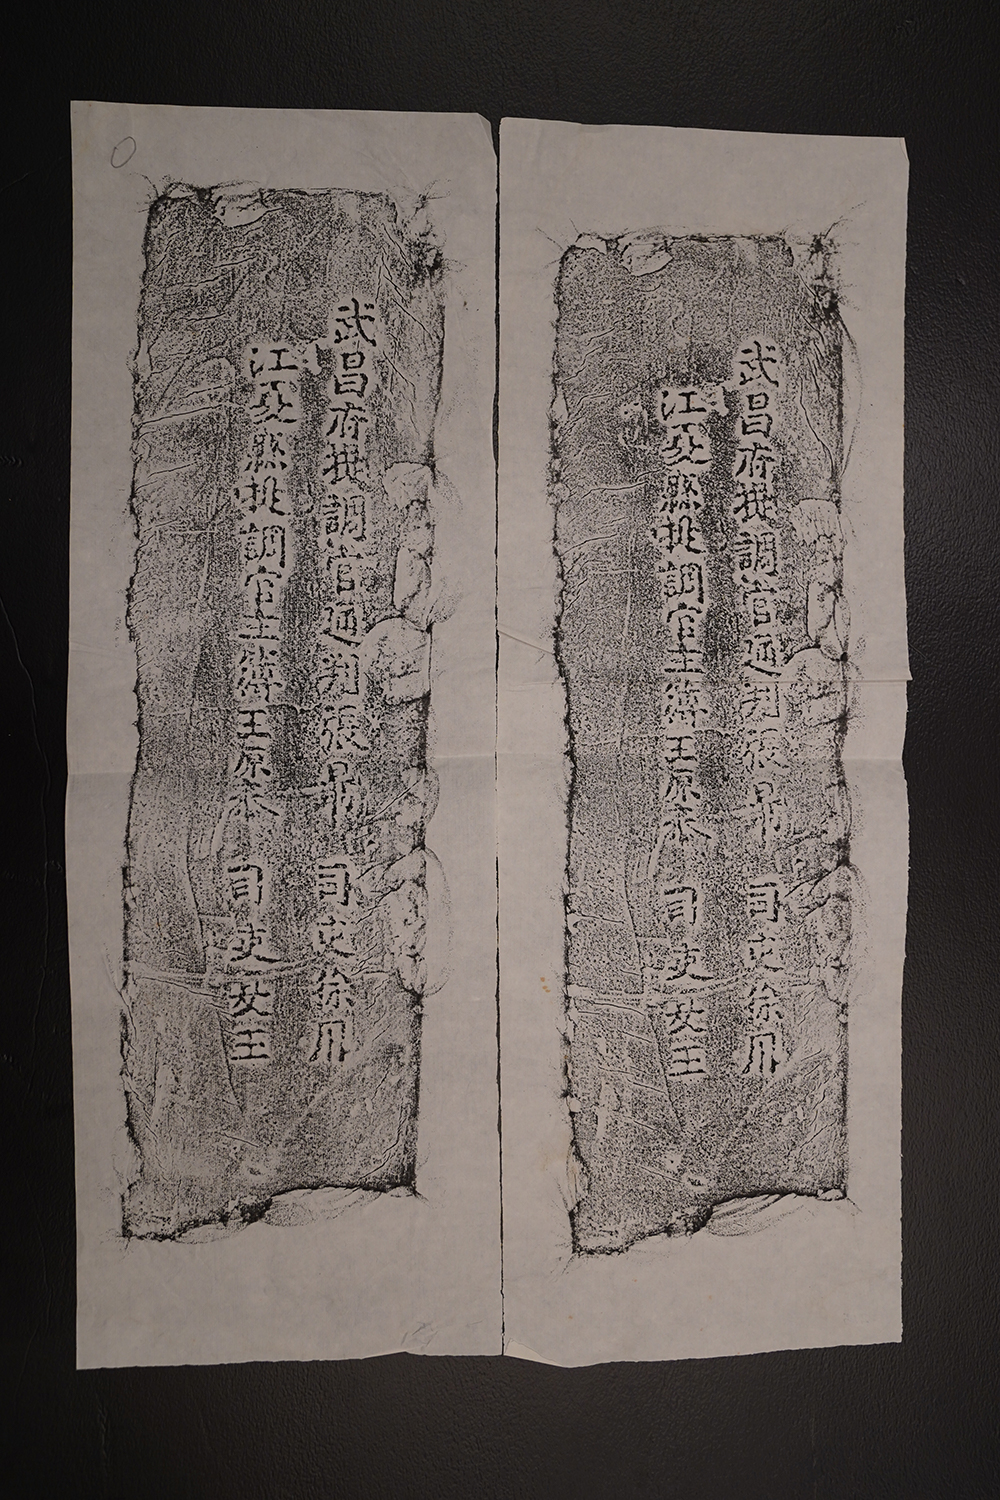 武昌府提調官通判張昴 司吏徐用
江夏縣提調官主簿王原泰 司吏女王
武昌府提調官通判張昴 司吏徐用
江夏縣提調官主簿王原泰 司吏女王